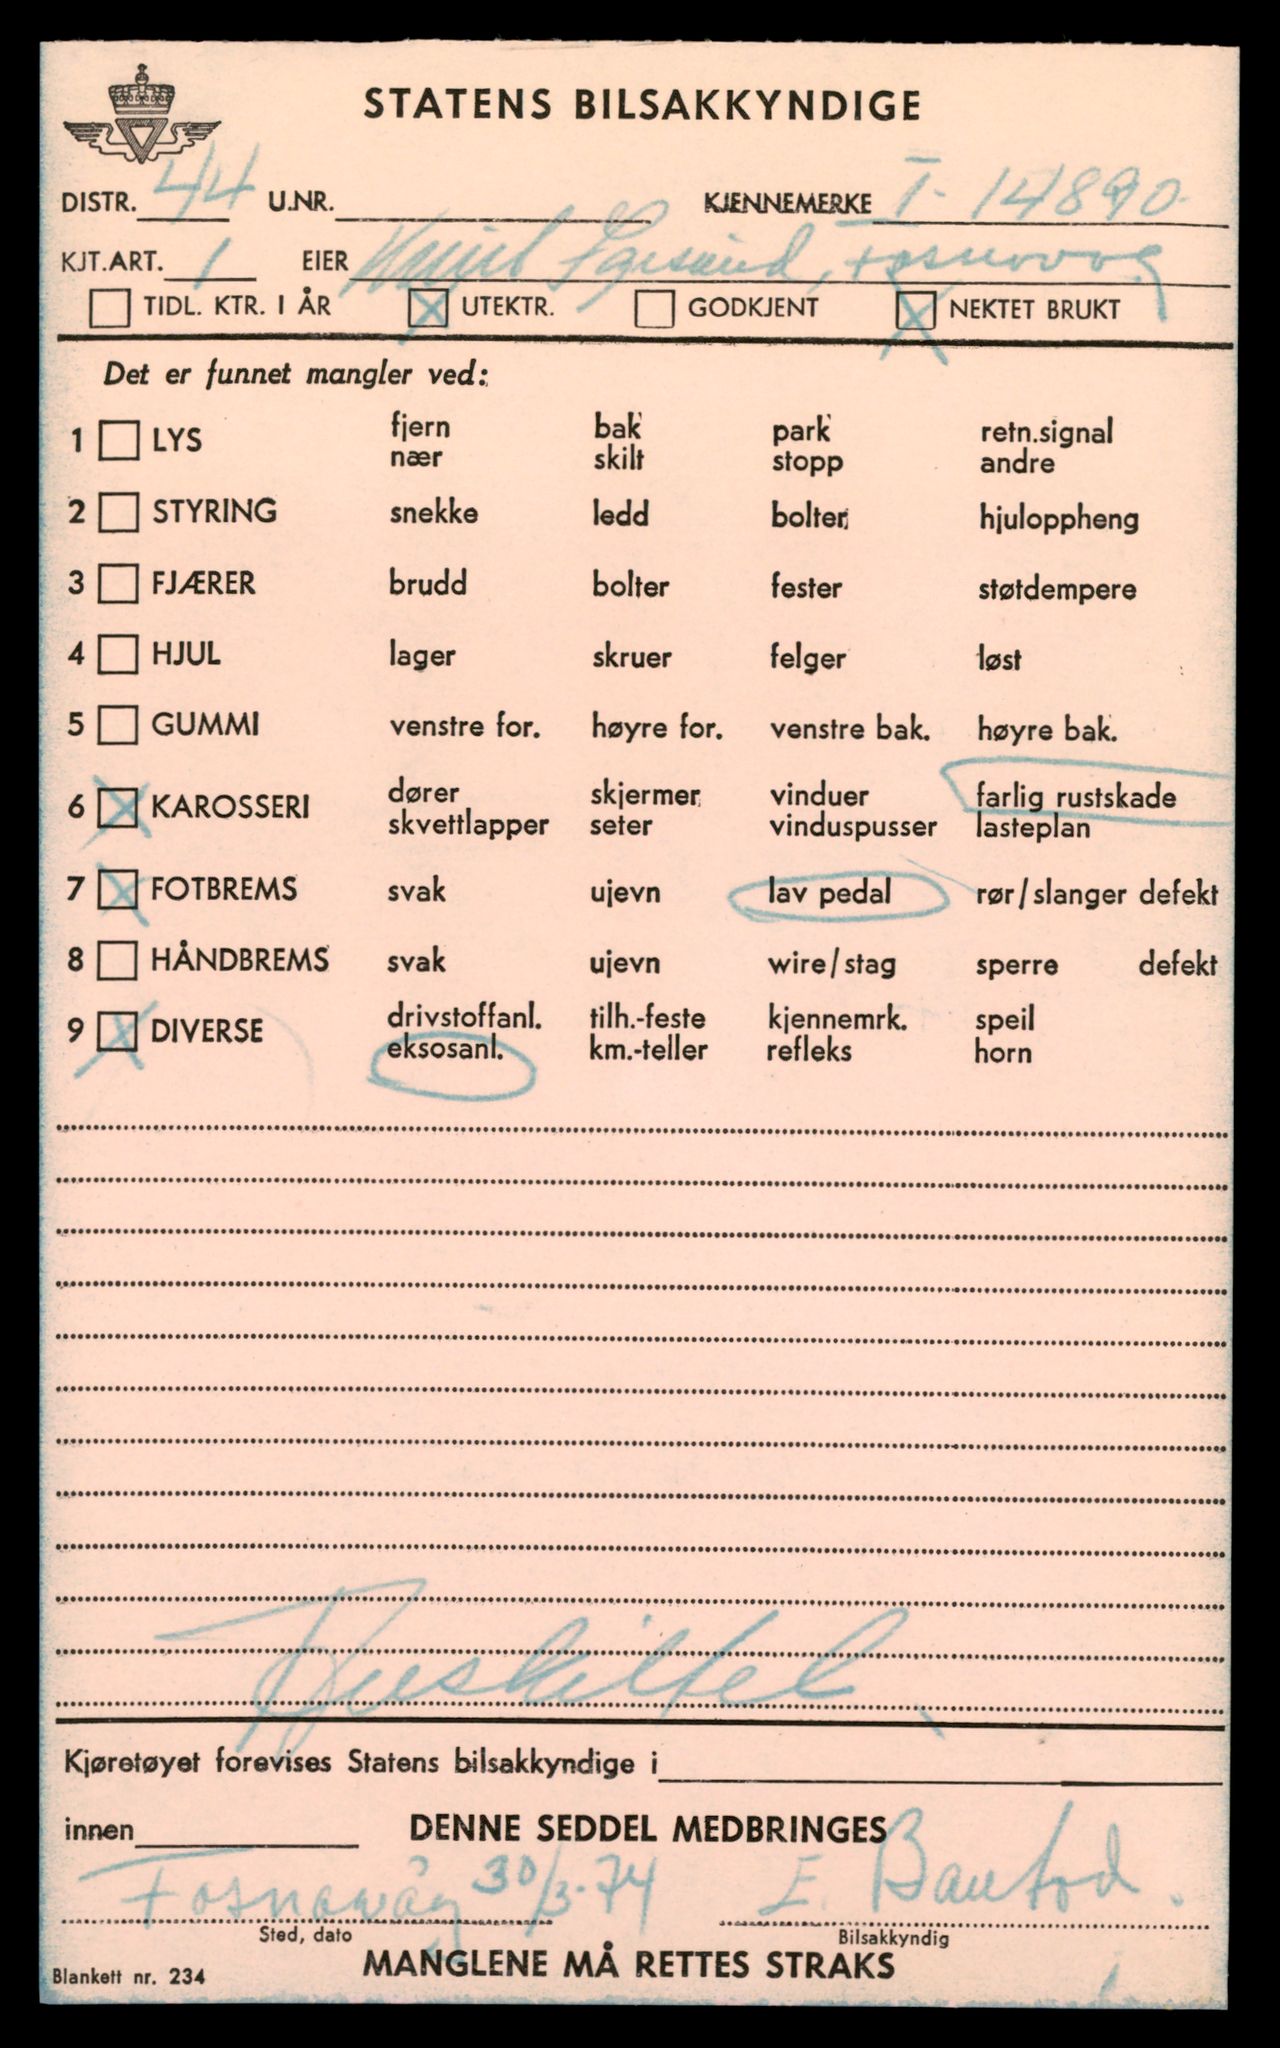 STATENS BILSAKKYNDIGE
DISTR. 44 U.NR. KJENNEMERKE T- 14890
KJT.ART. 1 EIER Egesund, Fosnavåg
TIDL. KTR. I ÅR UTEKTR. GODKJENT NEKTET BRUKT
Det er funnet mangler ved:
1 LYS fjern bak park retn.signal
nær skilt stopp andre
2 STYRING snekke ledd bolter hjuloppheng
3 FJÆRER brudd bolter fester støtdempere
4 HJUL lager skruer felger løst
5 GUMMI venstre for. høyre for. venstre bak. høyre bak.
6 KAROSSERI dører skjermer vinduer farlig rustskade
skvettlapper seter vinduspusser lasteplan
7 FOTBREMS svak ujevn lav pedal rør/slanger defekt
8 HÅNDBREMS svak ujevn wire/stag sperre defekt
9 DIVERSE drivstoffanl. tilh.-feste kjennemrk. speil
eksosanl. km.-teller refleks horn
Kjøretøyet forevises Statens bilsakkyndige i
innen DENNE SEDDEL MEDBRINGES
Fosnavåg 30/3-74 E.
Sted, dato Bilsakkyndig
MANGLENE MÅ RETTES STRAKS
Blankett nr. 234